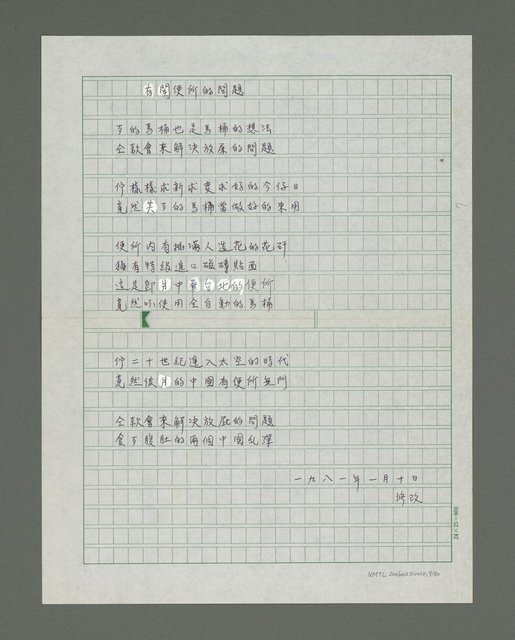 有関便所的問題
歹的馬桶也是馬桶的想法
仝款會來解決放屎的問題
佇樣樣求新求變求好的今仔日
竟然笑歹的馬桶當做好的來用
便所內有插滿人造花的花矸
猶有特級進口磁磚貼面
這是即月中華台北的便所
竟然 使用全自動的馬桶
佇二十世紀進入太空的時代
竟然彼月的中國有便所無門
仝款會來解決放屁的問題
食歹腹肚的兩個中國乱彈
一九八一年一月十日
修改
24×25=600
NMTL